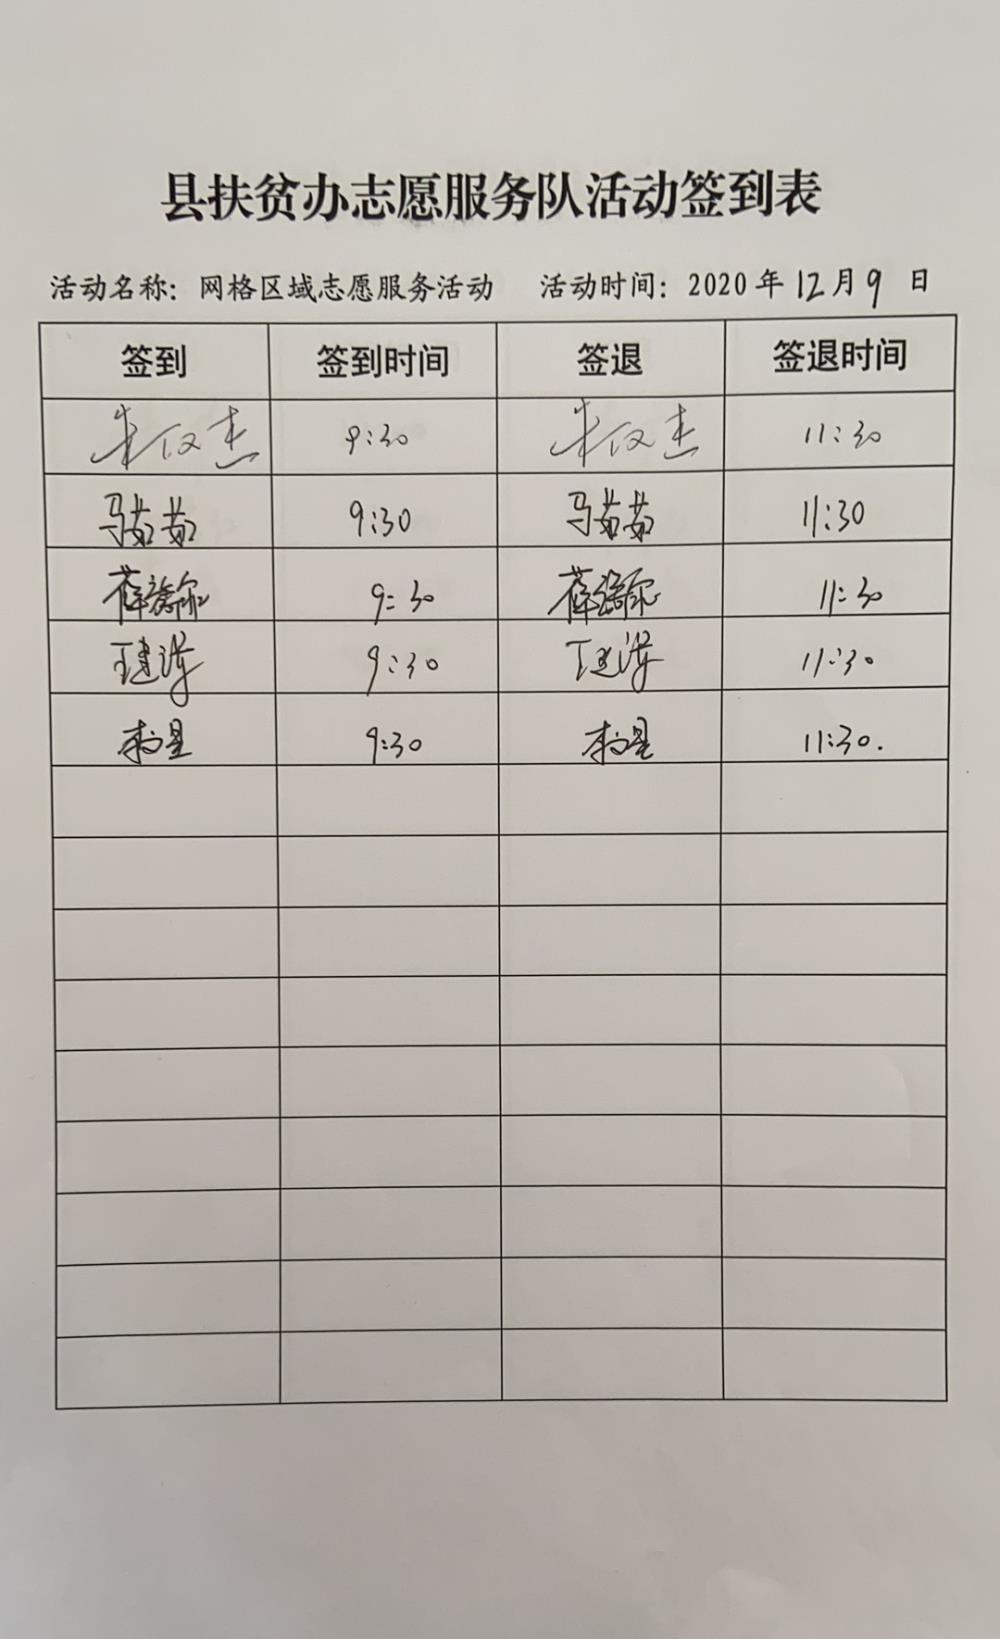 县扶贫办志愿服务队活动签到表
活动名称：网格区域志愿服务活动 活动时间：2020年12月9日
签到 签到时间 签退 签退时间
9:30 11:30
马茹茹 9:30 马茹茹 11:30
薛 9:30 薛 11:30
王建 9:30 王建 11:30
李文星 9:30 李文星 11:30.